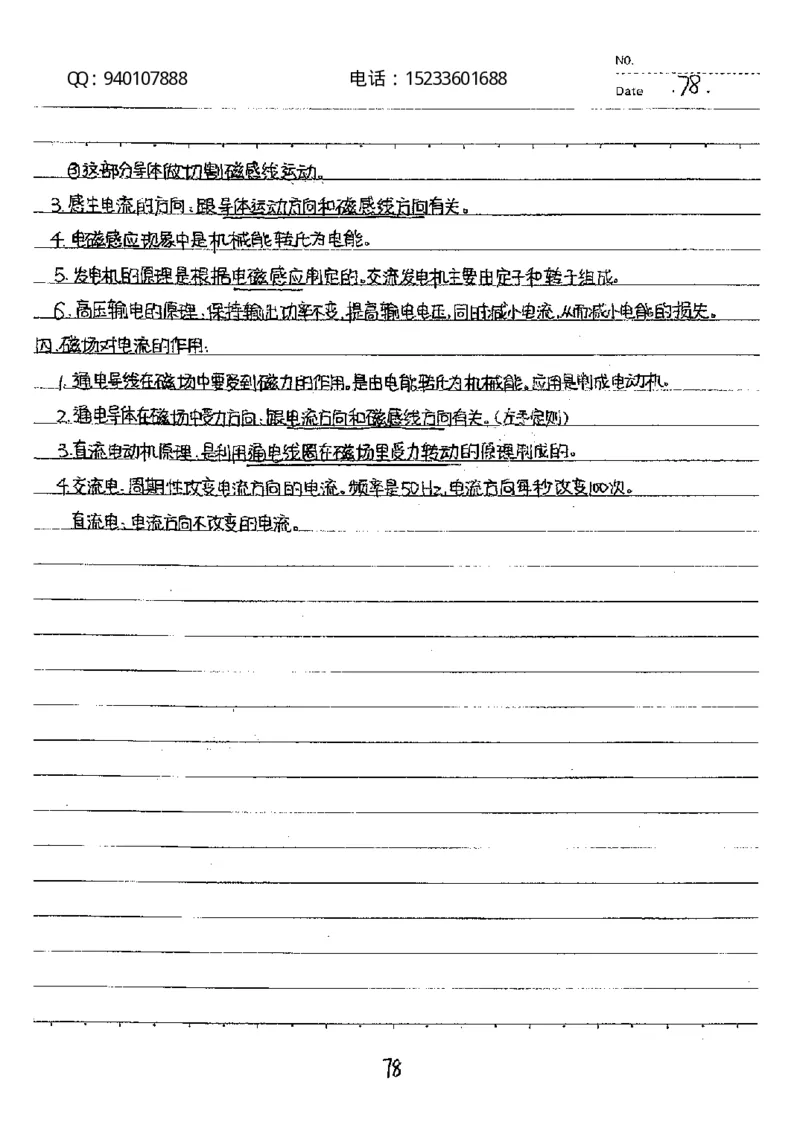 NO.
QQ：940107888 电话：15233601688
Date .78.
③这部分导体做切割磁感线运动。
3.感生电流的方向：跟导体运动方向和磁感线方向有关。
4.电磁感应现象中是机械能转化为电能。
5.发电机的原理是根据电磁感应制定的。交流发电机主要由定子和转子组成。
6.高压输电的原理：保持输出功率不变，提高输电电压，同时减小电流，从而减小电能的损失。
四.磁场对电流的作用：
1.通电导线在磁场中要受到磁力的作用。是由电能转化为机械能。应用是制成电动机。
2.通电导体在磁场中受力方向：跟电流方向和磁感线方向有关。（左手定则）
3.直流电动机原理：是利用通电线圈在磁场里受力转动的原理制成的。
4.交流电：周期性改变电流方向的电流。频率是50Hz，电流方向每秒改变100次。
直流电：电流方向不改变的电流。
78